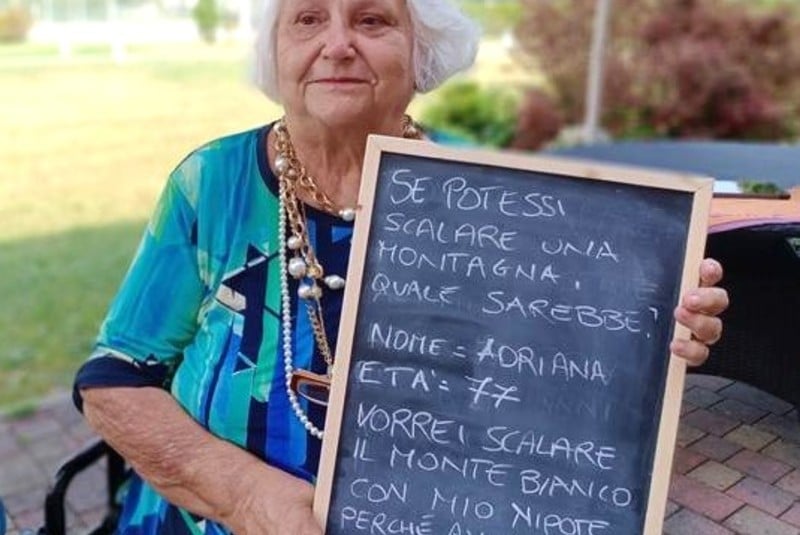 SE POTESSI
SCALARE UNA
MONTAGNA,
QUALE SAREBBE?
NOME = ADRIANA
ETÀ = 77
VORREI SCALARE
IL MONTE BIANCO
CON MIO NIPOTE
PERCHÉ